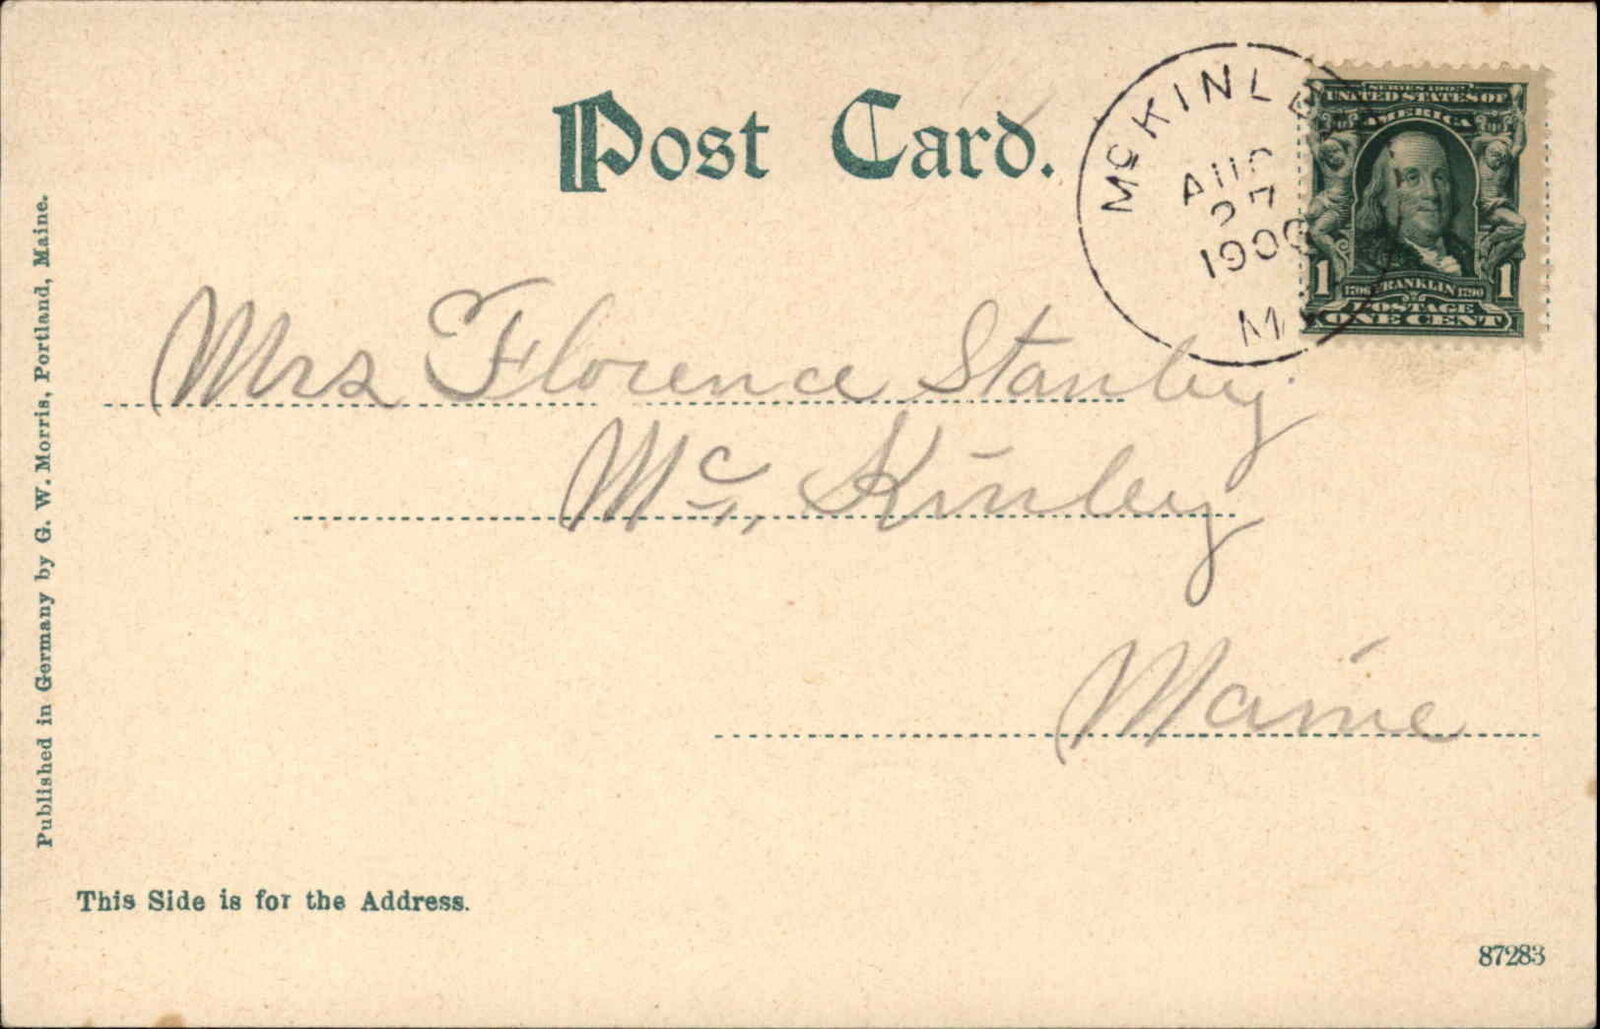 Post Card.
McKINLE
AUG
27
1906
M
SERIES 1902
UNITED STATES OF
AMERICA
1 1
1706 FRANKLIN 1790
POSTAGE
ONE CENT
Mrs Florence Stanley.
Mc, Kinley
Maine
Published in Germany by G. W. Morris, Portland, Maine.
This Side is for the Address.
87283